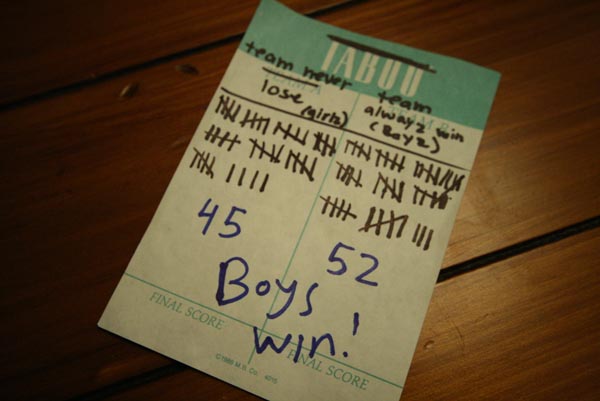 TABOO
team never
lose
(girlz)
team
alwayz win
(Boyz)
45
52
Boys
win!
FINAL SCORE
FINAL SCORE
©1989 M.B. Co. 4015